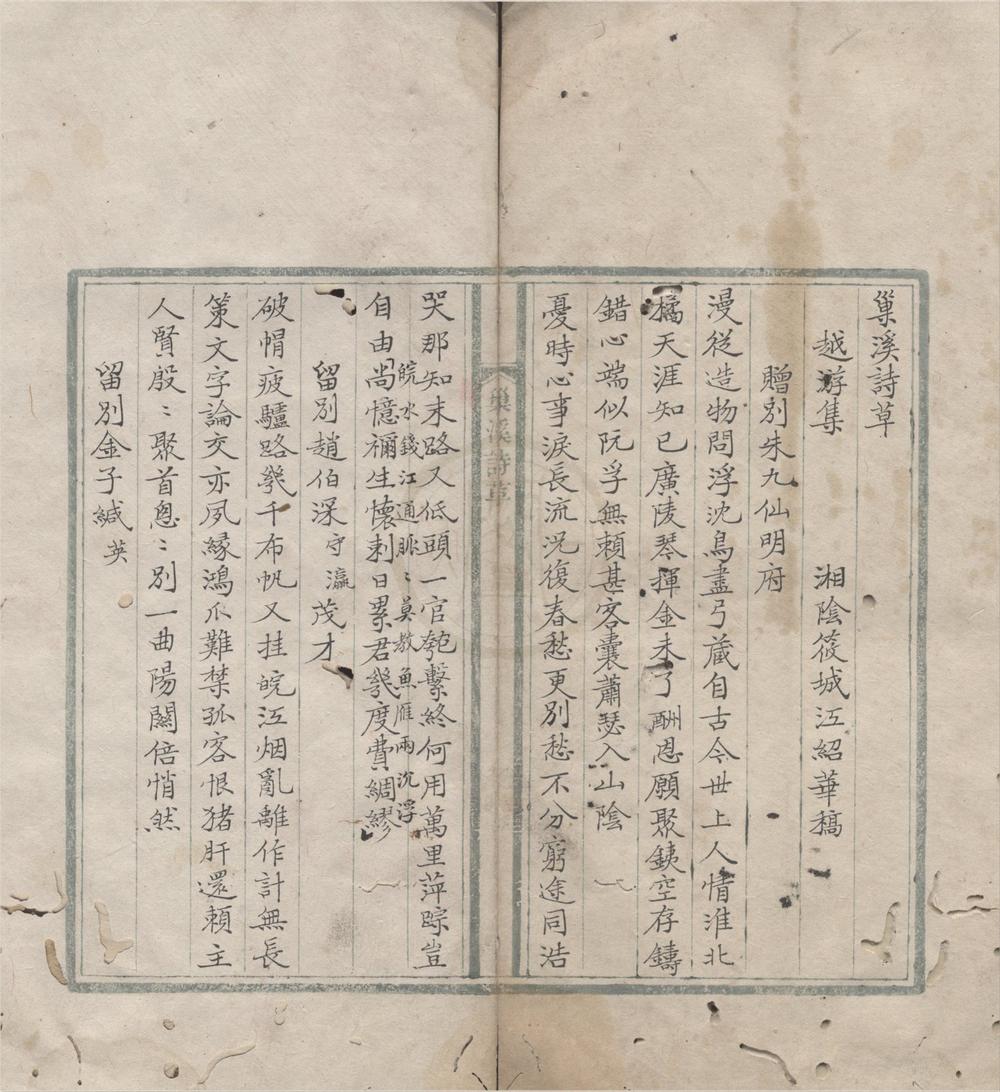 巢溪詩草
越游集　湘陰筱城江紹華稿
贈別朱九仙明府
漫從造物問浮沈鳥盡弓藏自古今世上人情淮北
橘天涯知已廣陵琴揮金未了酬恩願聚鉄空存鑄
錯心端似阮孚無賴甚客囊蕭瑟入山陰
憂時心事淚長流況復春愁更別愁不分窮途同浩
巢溪詩草
哭那知末路又低頭一官匏繫終何用萬里萍踪豈
自由皖水錢江通脈〻莫教魚雁兩沈浮
尚憶禰生懷刺日累君幾度費綢繆
留別趙伯深守瀛茂才
破帽疲驢路幾千布帆又挂皖江烟亂離作計無長
策文字論交亦夙緣鴻爪難禁孤客恨猪肝還賴主
人賢殷〻聚首恩〻別一曲陽關倍悄然
留別金子緘英